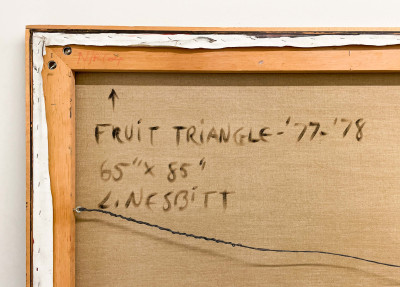 FRUIT TRIANGLE-'77-'78
65"X 85"
L. NESBITT